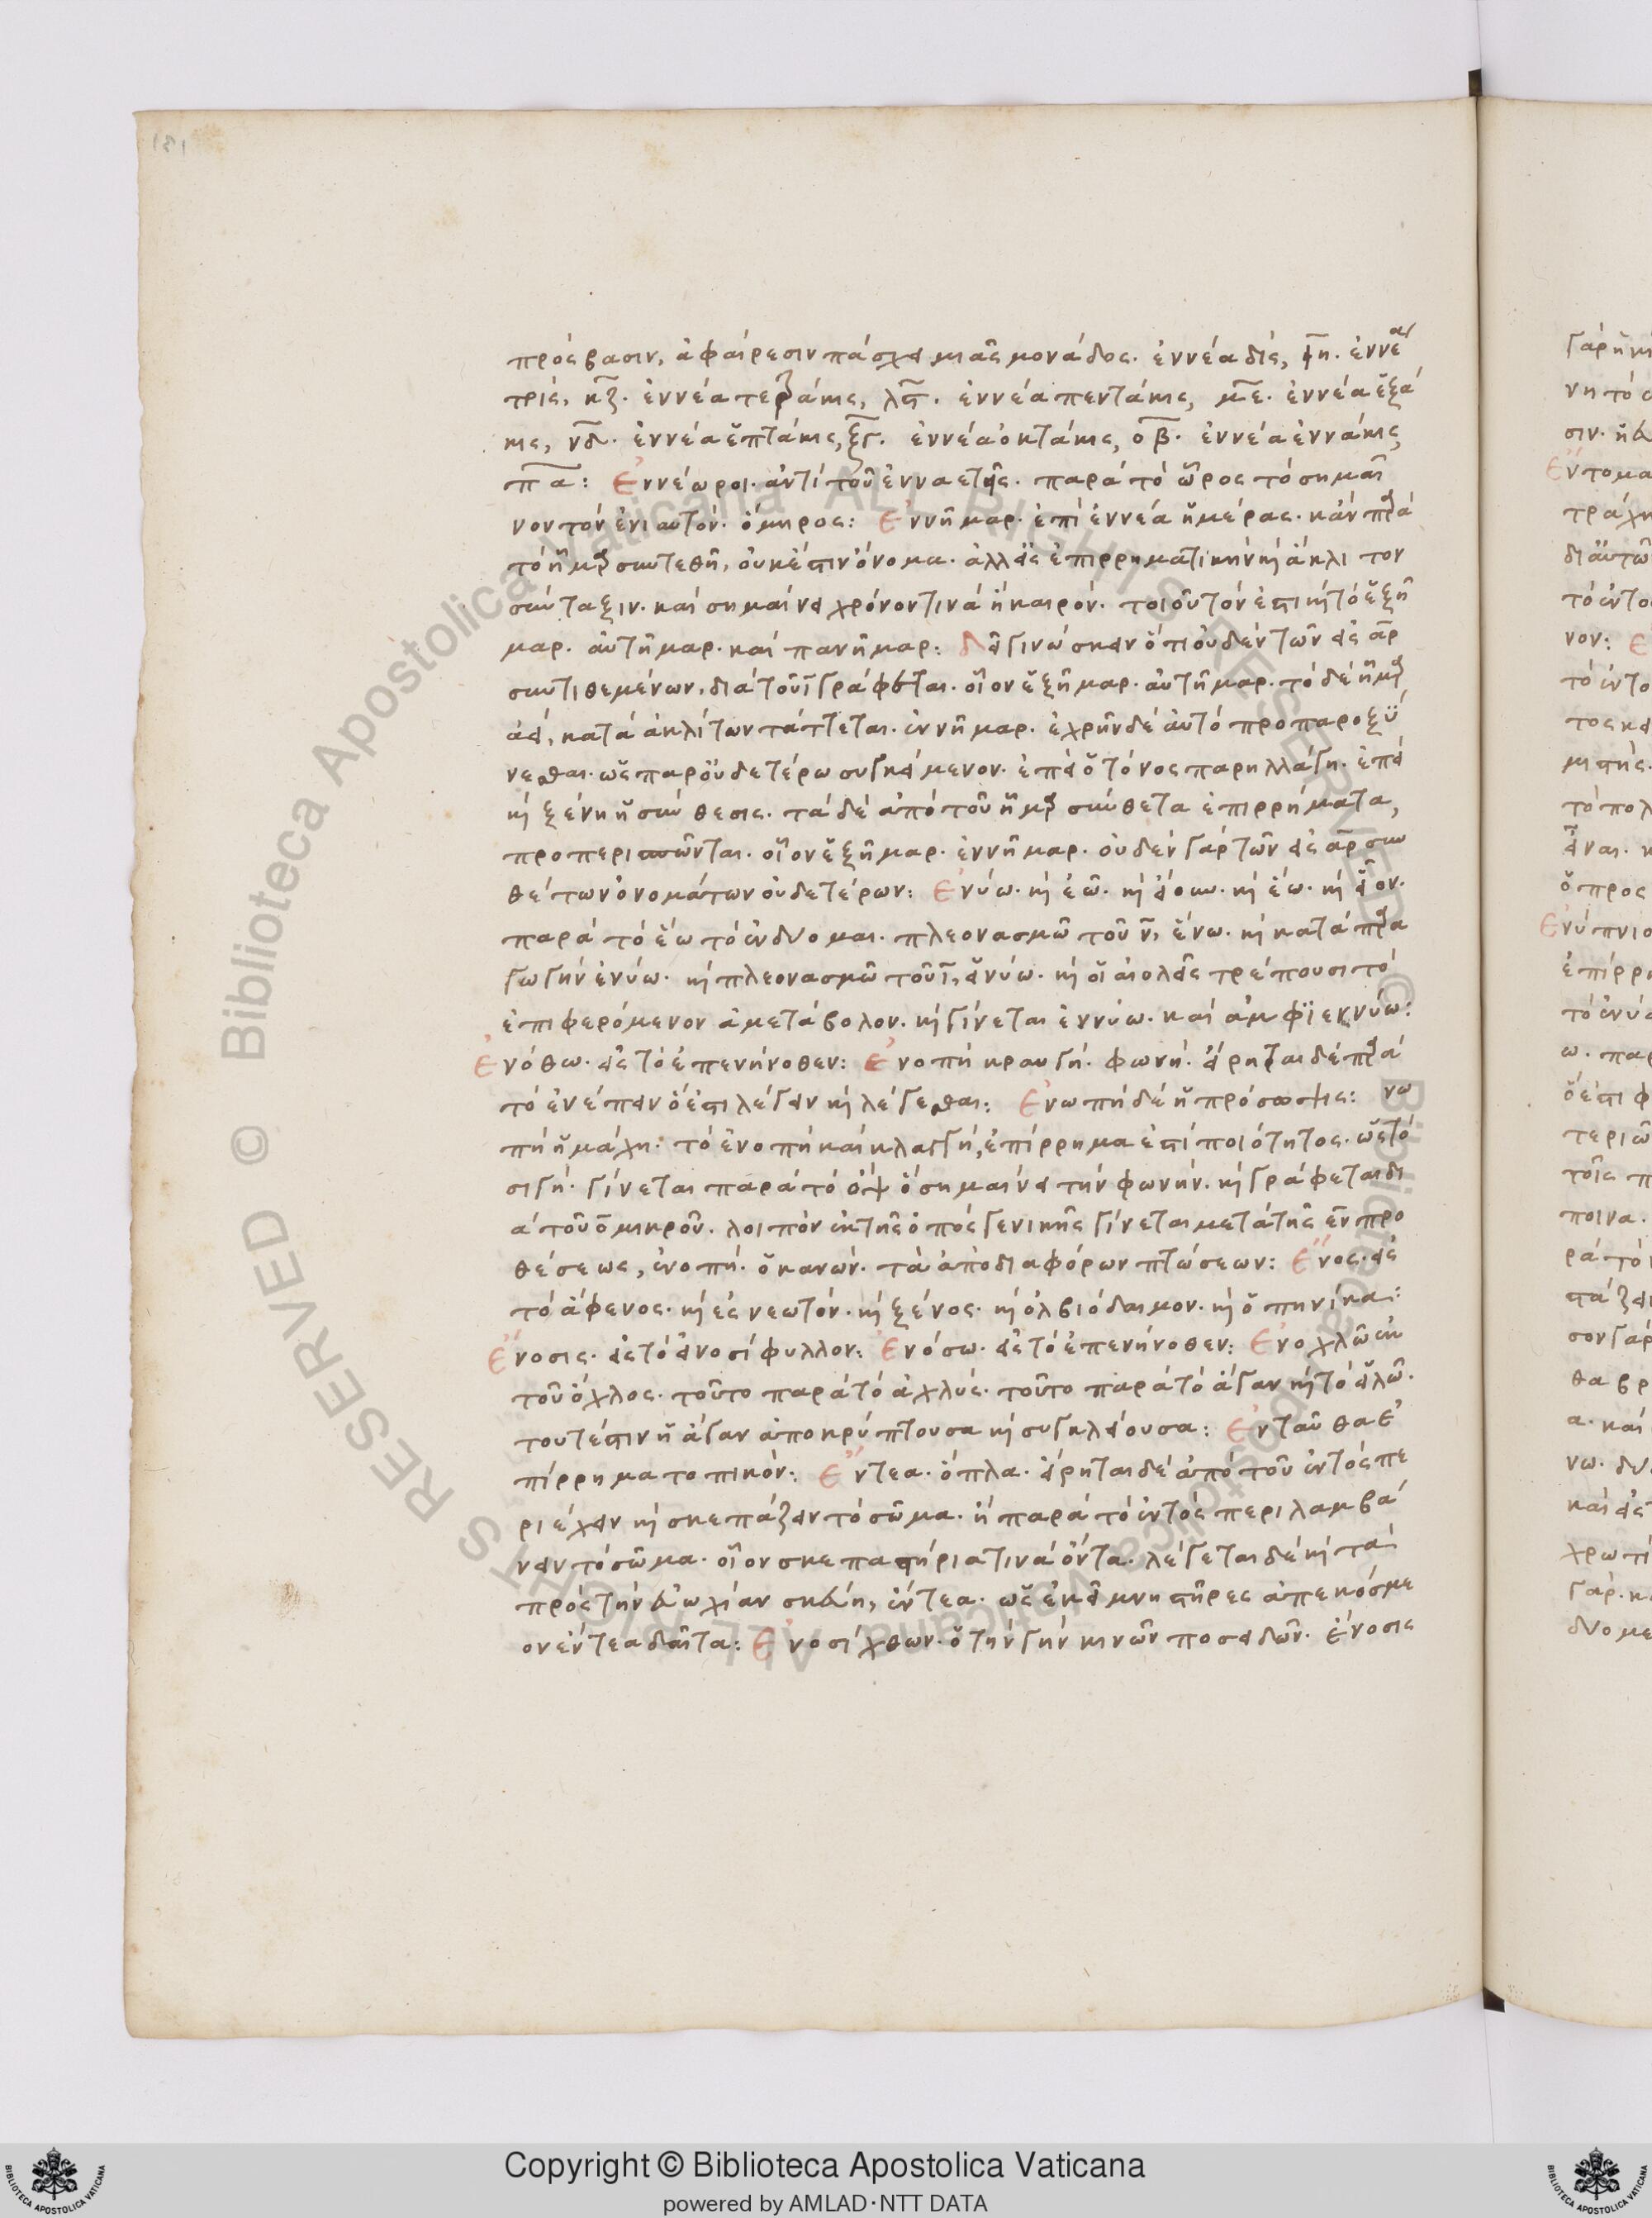 πρόσβασιν, ἀφαίρεσιν πάσχει μιᾶς μονάδος. ἐννέα δίς, ιη. ἐννέα
τρίς, κζ. ἐννέα τετράκις, λς. ἐννέα πεντάκις, με. ἐννέα ἑξά
κις, νδ. ἐννέα ἑπτάκις, ξγ. ἐννέα ὀκτάκις, οβ. ἐννέα ἐννάκις,
πα: Ἐννέωροι. ἀντὶ τοῦ ἐνναετῆς. παρὰ τὸ ὧρος τὸ σημαῖ
νον τὸν ἐνιαυτόν. ὅμηρος: Ἐννῆμαρ. ἐπὶ ἐννέα ἡμέρας. κἂν παρὰ
τὸ ἦμαρ συντεθῆ, οὐκέστιν ὄνομα. ἀλλ' εἰς ἐπιρρηματικὴν καὶ ἄκλιτον
σύνταξιν. καὶ σημαίνει χρόνον τινὰ ἢ καιρόν. τοιοῦτον ἐστι καὶ τὸ ἑξῆ
μαρ. αὐτῆμαρ. καὶ πανῆμαρ: δεῖ γινώσκειν ὅτι οὐδὲν τῶν εἰς αρ
συντιθεμένων, διὰ τοῦ ι γράφεται. οἷον ἑξῆμαρ. αὐτῆμαρ. τὸ δὲ ἦμαρ
ἀεί, κατὰ ἀκλίτων τάττεται. ἐννῆμαρ. ἐχρῆν δὲ αὐτὸ προπαροξύ
νεσθαι. ὡς παρ' οὐδετέρω συγκείμενον. ἐπεὶ ὁ τόνος παρηλλάγη. ἐπεὶ
καὶ ξένη ἡ σύνθεσις. τὰ δὲ ἀπὸ τοῦ ἦμαρ σύνθετα ἐπιρρήματα,
προπερισπῶνται. οἷον ἑξῆμαρ. ἐννῆμαρ. οὐδὲν γὰρ τῶν εἰς αρ συν
θέτων ὀνομάτων οὐδετέρων: Ἐνύω. καὶ ἑῶ. καὶ εἵσω. καὶ ἕω. καὶ εἷον.
παρὰ τὸ ἕω τὸ ἐνδύομαι. πλεονασμῶ τοῦ ν, ἕνω. καὶ κατὰ παρα
γωγὴν ἑνύω. καὶ πλεονασμῶ τοῦ ι, εἱνύω. καὶ οἱ αἰολεῖς τρέπουσι τὸ
ἐπιφερόμενον ἀμετάβολον. καὶ γίνεται ἐννύω. καὶ ἀμφιεννύω:
Ἐνόθω. εἰς τὸ ἐπενήνοθεν: Ἐνοπὴ κραυγή. φωνή. εἴρηται δὲ παρὰ
τὸ ἐνέπειν ὅ ἐστι λέγειν καὶ λέγεσθαι: Ἐνωπὴ δὲ ἡ πρόσοψις: νω
πὴ ἡ μάχη: τὸ ἐνοπὴ καὶ κλαγγή, ἐπίρρημα ἐστὶ ποιότητος. ὡς τὸ
σιγῆ. γίνεται παρὰ τὸ ὂψ ὃ σημαίνει τὴν φωνήν. καὶ γράφεται δι
ὰ τοῦ ο μικροῦ. λοιπὸν ἐκ τῆς ὀπὸς γενικῆς γίνεται μετὰ τῆς εν προ
θέσεως, ἐνοπή. ὁ κανών. τὰ ἀπὸ διαφόρων πτώσεων: Ἕνος. εἰς
τὸ ἄφενος. καὶ ἐς νεωτόν. καὶ ξένος. καὶ ὀλβιόδαιμον. καὶ ὁπηνίκα:
Ἔνοσις. εἰς τὸ εἰνοσίφυλλον: Ἐνόσω. εἰς τὸ ἐπενήνοθεν: Ἐνοχλῶ ἐκ
τοῦ ὄχλος. τοῦτο παρὰ τὸ ἀχλύς. τοῦτο παρὰ τὸ ἄγαν καὶ τὸ εἱλῶ.
τουτέστιν ἡ ἄγαν ἀποκρύπτουσα καὶ συγκλείουσα: Ἐνταῦθα ἐ
πίρρημα τοπικόν: Ἔντεα. ὅπλα. εἴρηται δὲ ἀπὸ τοῦ ἐντὸς πε
ριέχειν καὶ σκεπάζειν τὸ σῶμα. ἢ παρὰ τὸ ἐντὸς περιλαμβά
νειν τὸ σῶμα. οἷον σκεπαστήρια τινὰ ὄντα. λέγεται δὲ καὶ τὰ
πρὸς τὴν εὐωχίαν σκεύη, ἔντεα. ὡς ἐκεῖ μνηστῆρες ἀπεκόσμε
ον ἔντεα δαῖτα: Ἐνοσίχθων. ὁ τὴν γῆν κινῶν ποσειδῶν. ἔνοσις
Copyright © Biblioteca Apostolica Vaticana
powered by AMLAD·NTT DATA